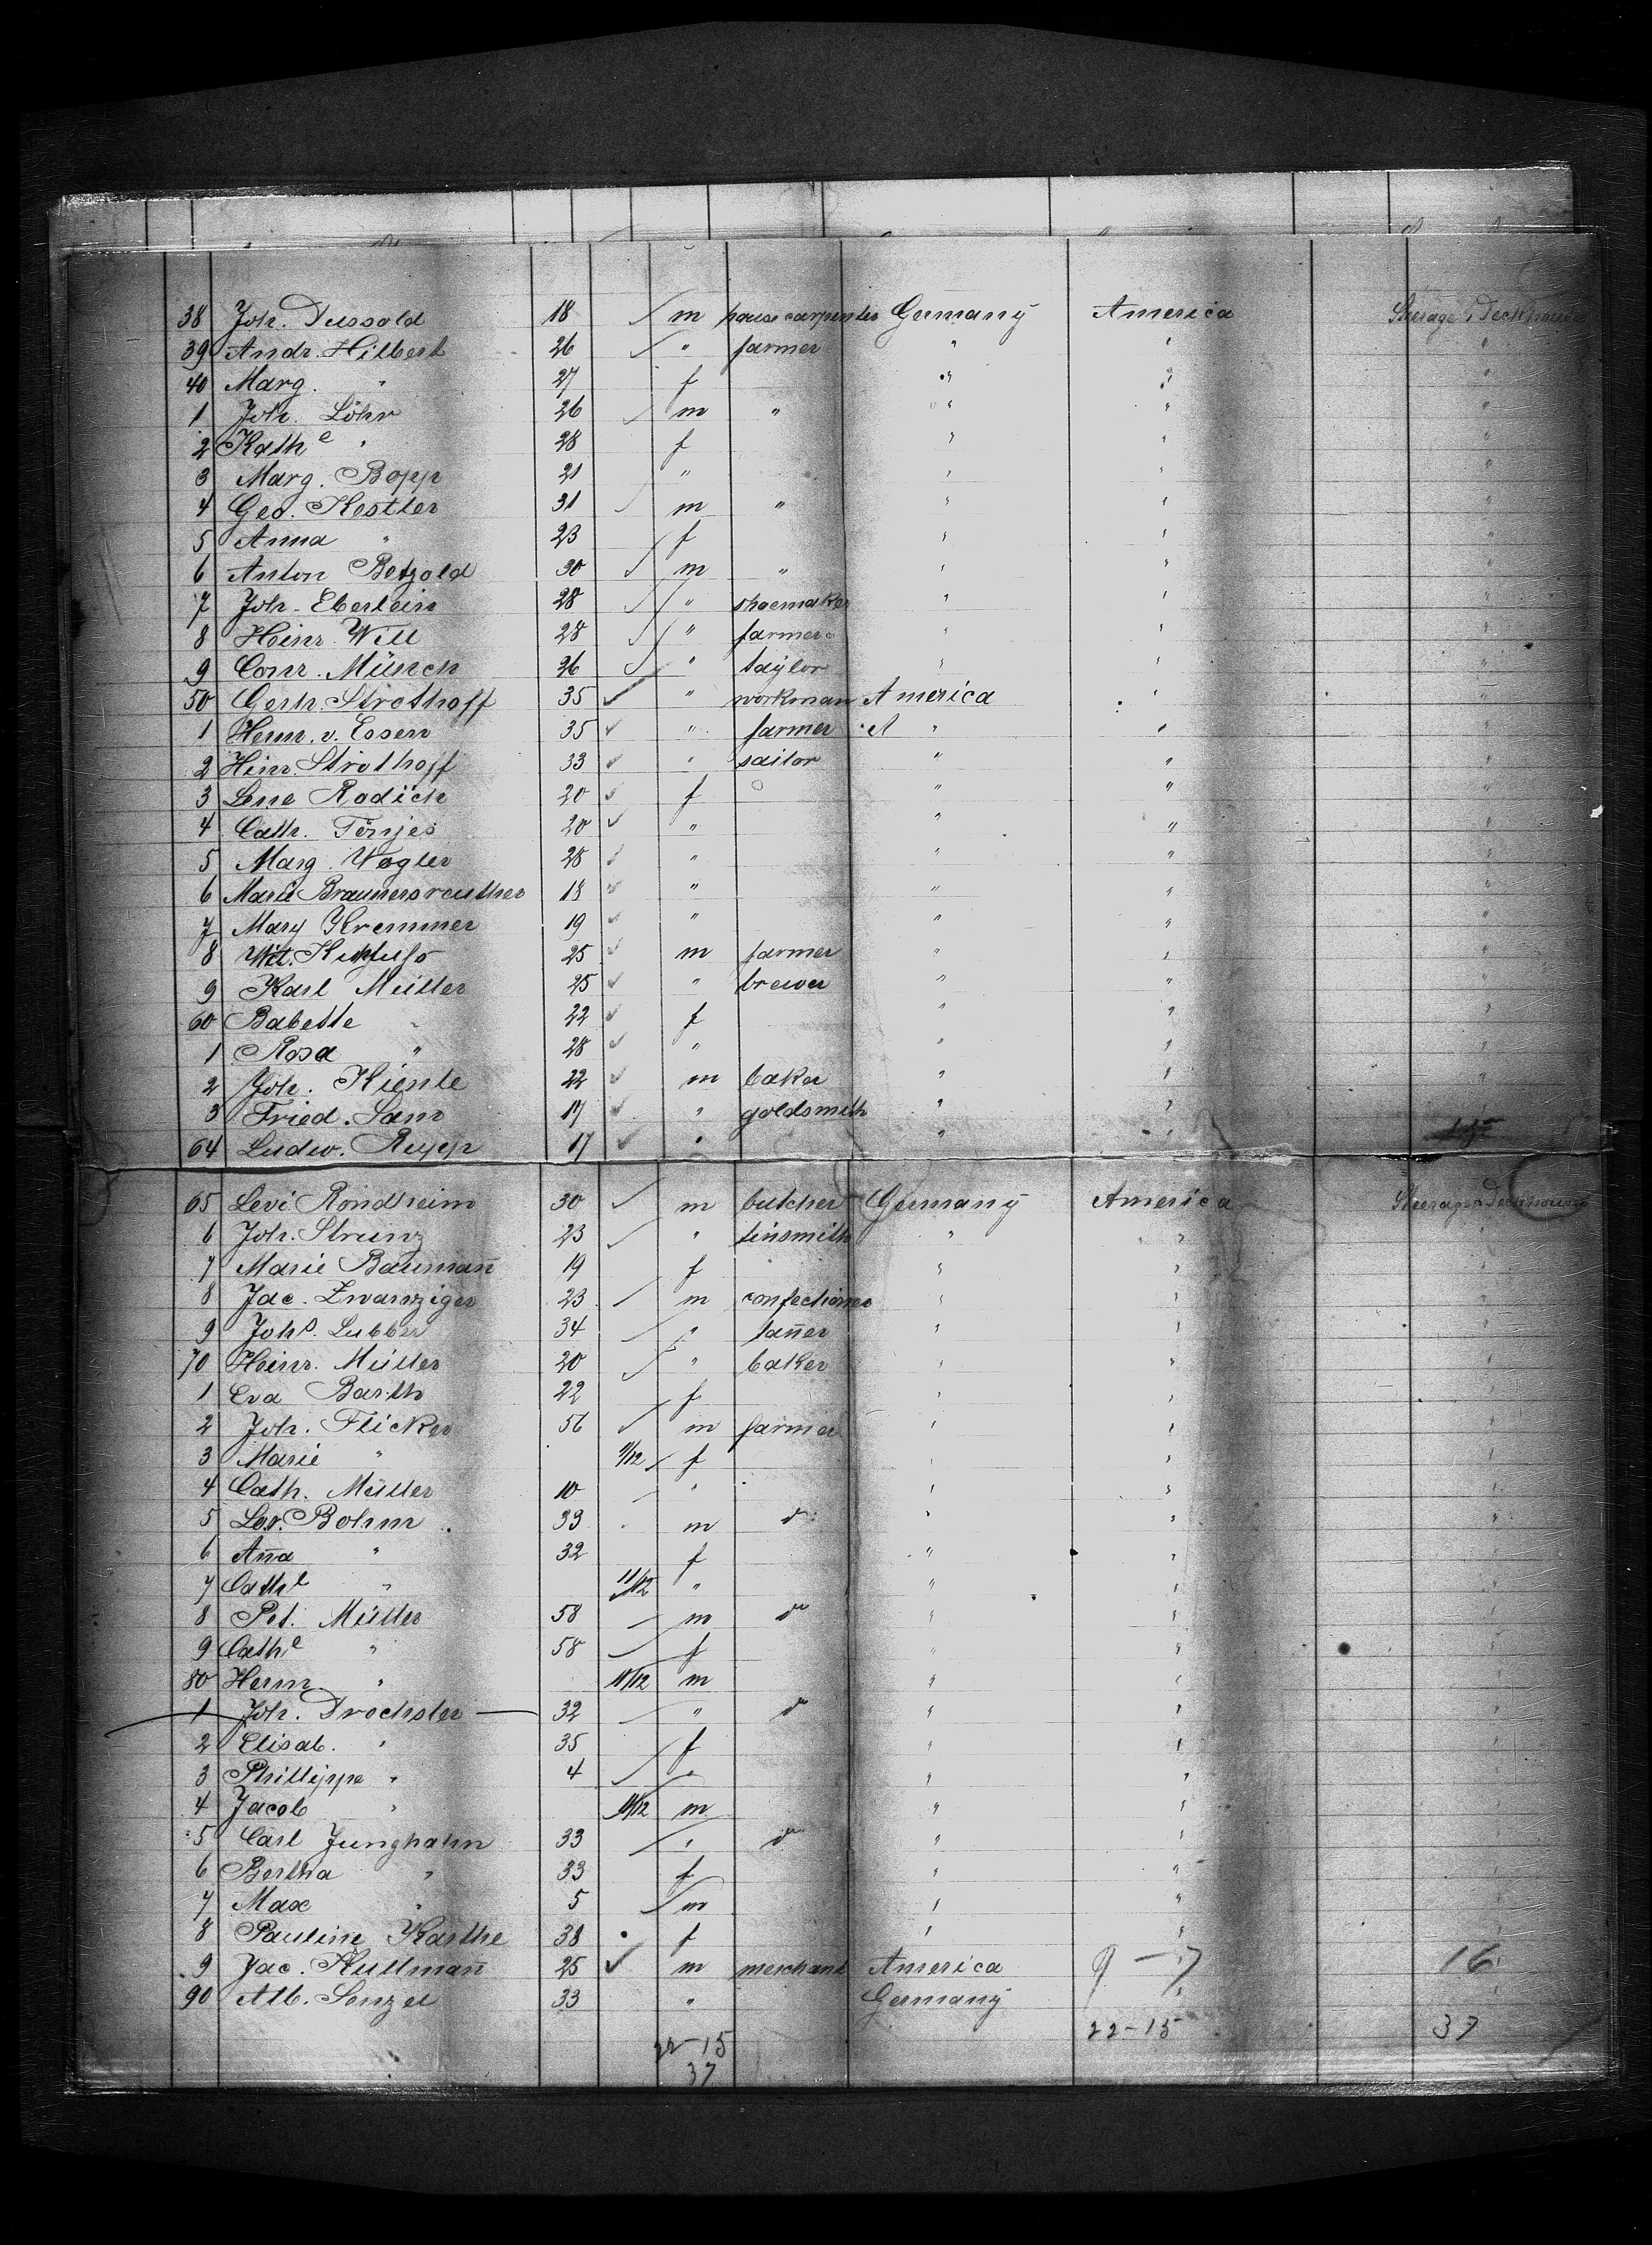 38 Joh. Dussold 18 m house carpenter Germany America Steerage, Deckhouse
39 Andr. Hilbert 26 " farmer " " "
40 Marg. " 27 f " " "
1 Joh. Löhr 26 m " " " "
2 Kathe " 28 f " " "
3 Marg. Bopp 21 " " " "
4 Geo. Kestler 31 m " " " "
5 Anna " 23 f " " "
6 Anton Betzold 30 m " " " "
7 Joh. Eberlein 28 " shoemaker " " "
8 Heinr. Will 28 " farmer " " "
9 Conr. Münch 26 " taylor " " "
50 Gerh. Strothoff 35 " workman America " "
1 Herm. v. Essen 35 " farmer A " " "
2 Heinr. Strothoff 33 " sailor " " "
3 Lene Radich 20 f " " "
4 Cath. Tönjes 20 " " " "
5 Marg. Vogler 28 " " " "
6 Marie Braunersreuther 18 " " " "
7 Mary Kremmer 19 " " " "
8 25 m farmer " " "
9 Karl Müller 25 " brewer " " "
60 Babette " 22 f " " "
1 Rosa " 28 " " " "
2 Joh. Kienle 22 m baker " " "
3 Fried. Sam 17 " goldsmith " "
64 Ludw. Rupp 17 " " "
65 Levi Rondheim 30 m butcher Germany America Steerage, Deckhouse
6 Joh. Strunz 23 " tinsmith " " "
7 Marie Baumañ 19 f " " "
8 Jac. Zwanziger 23 m confectioner " " "
9 Johs. Lubben 34 " tañer " " "
70 Heinr. Müller 20 " baker " " "
1 Eva Barth 22 f " " "
2 Joh. Flicker 56 m farmer " " "
3 Marie " f " " "
4 Cath. Müller 10 " " " "
5 Bohm 33 m do " " "
6 Aña " 32 f " " "
7 Cathe " 11/12 " " " "
8 Pet. Müller 58 m do " " "
9 Cathe " 58 f " " "
80 Herm. " 11/12 m " " "
1 Joh. Drochsler 32 " do " " "
2 Elisab. " 35 f " " "
3 Phillippe " 4 " " " "
4 Jacob " 11/12 m " " "
5 Carl Junghahn 33 " do " " "
6 Bertha " 33 f " " "
7 Max " 5 m " " "
8 Pauline Karthe 38 f " " "
9 Jac. Kullmañ 25 m merchant America 9-7 16
90 Alb. Senzel 33 " Germany " "
22-15 22-15 37
37